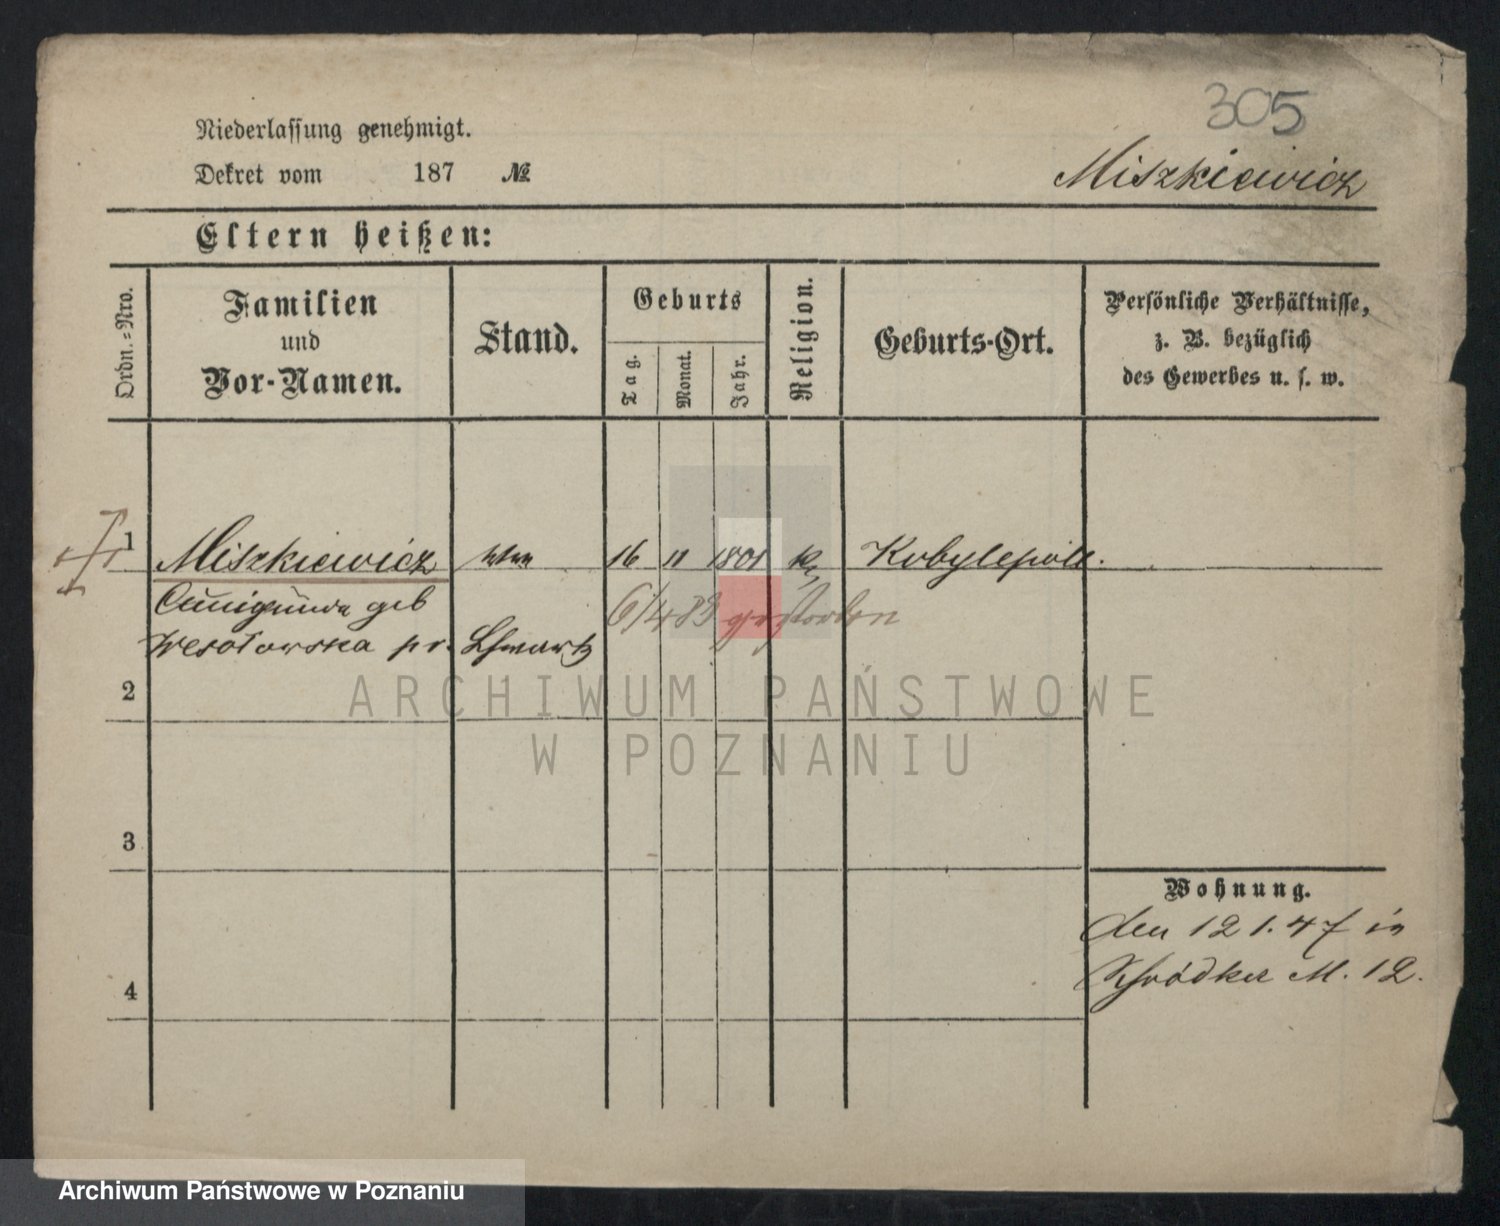 305
Niederlassung genehmigt.
Dekret vom 187 №
Miszkiewicz
Eltern heißen:
Ordn.=Nro.
Familien
und
Vor-Namen.
Stand.
Geburts
Tag.
Monat.
Jahr.
Religion.
Geburts-Ort.
Persönliche Verhältnisse,
z. B. bezüglich
des Gewerbes u. s. w.
1 Miszkiewicz Wwe 16 11 1801 Kobylepole.
Cunigunde geb
6/4 83 gestorben
Wesołowska pr.
2
ARCHIWUM PAŃSTWOWE
W POZNANIU
3
Wohnung.
den 12 1. 47 in
Schrodka M. 12.
4
Archiwum Państwowe w Poznaniu